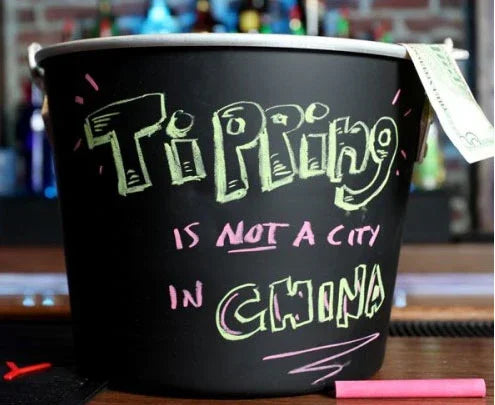 Tipping
IS NOT A CITY
IN CHINA